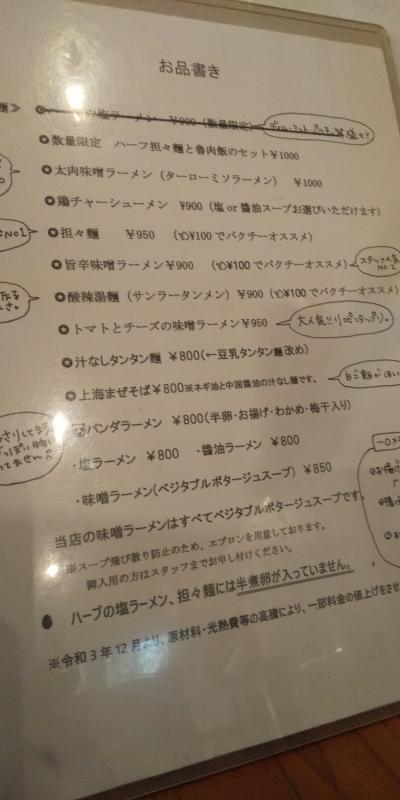 お品書き
麺》
の塩ラーメン ¥900(数量限定)
数量限定 ハーフ担々麺と魯肉飯のセット¥1000
太肉味噌ラーメン(ターローミソラーメン) ¥1000
鶏チャーシューメン ¥900(塩or醤油スープお選びいただけます)
No1
担々麺 ¥950 (¥100でパクチーオススメ)
旨辛味噌ラーメン¥900 (¥100でパクチーオススメ)
スタッフ人気No.1
酸辣湯麵(サンラータンメン)¥900(¥100でパクチーオススメ)
トマトとチーズの味噌ラーメン¥950
大人気!!リピーターップリ。
汁なしタンタン麺 ¥800(←豆乳タンタン麺改め)
上海まぜそば¥800※ネギ油と中国醤油の汁なし麺です。
白ご飯がほし
パンダラーメン ¥800(半卵・お揚げ・わかめ・梅干入り)
・塩ラーメン ¥800 ・醤油ラーメン ¥800
・味噌ラーメン(ベジタブルポタージュスープ) ¥850
当店の味噌ラーメンはすべてベジタブルポタージュスープです。
※スープ飛び散り防止のため、エプロンを用意しております。
御入用の方はスタッフまでお申し付けください。
● ハーブの塩ラーメン、担々麺には半煮卵が入っていません。
※令和3年12月より、原材料・光熱費等の高騰により、一部料金の値上げをさせ